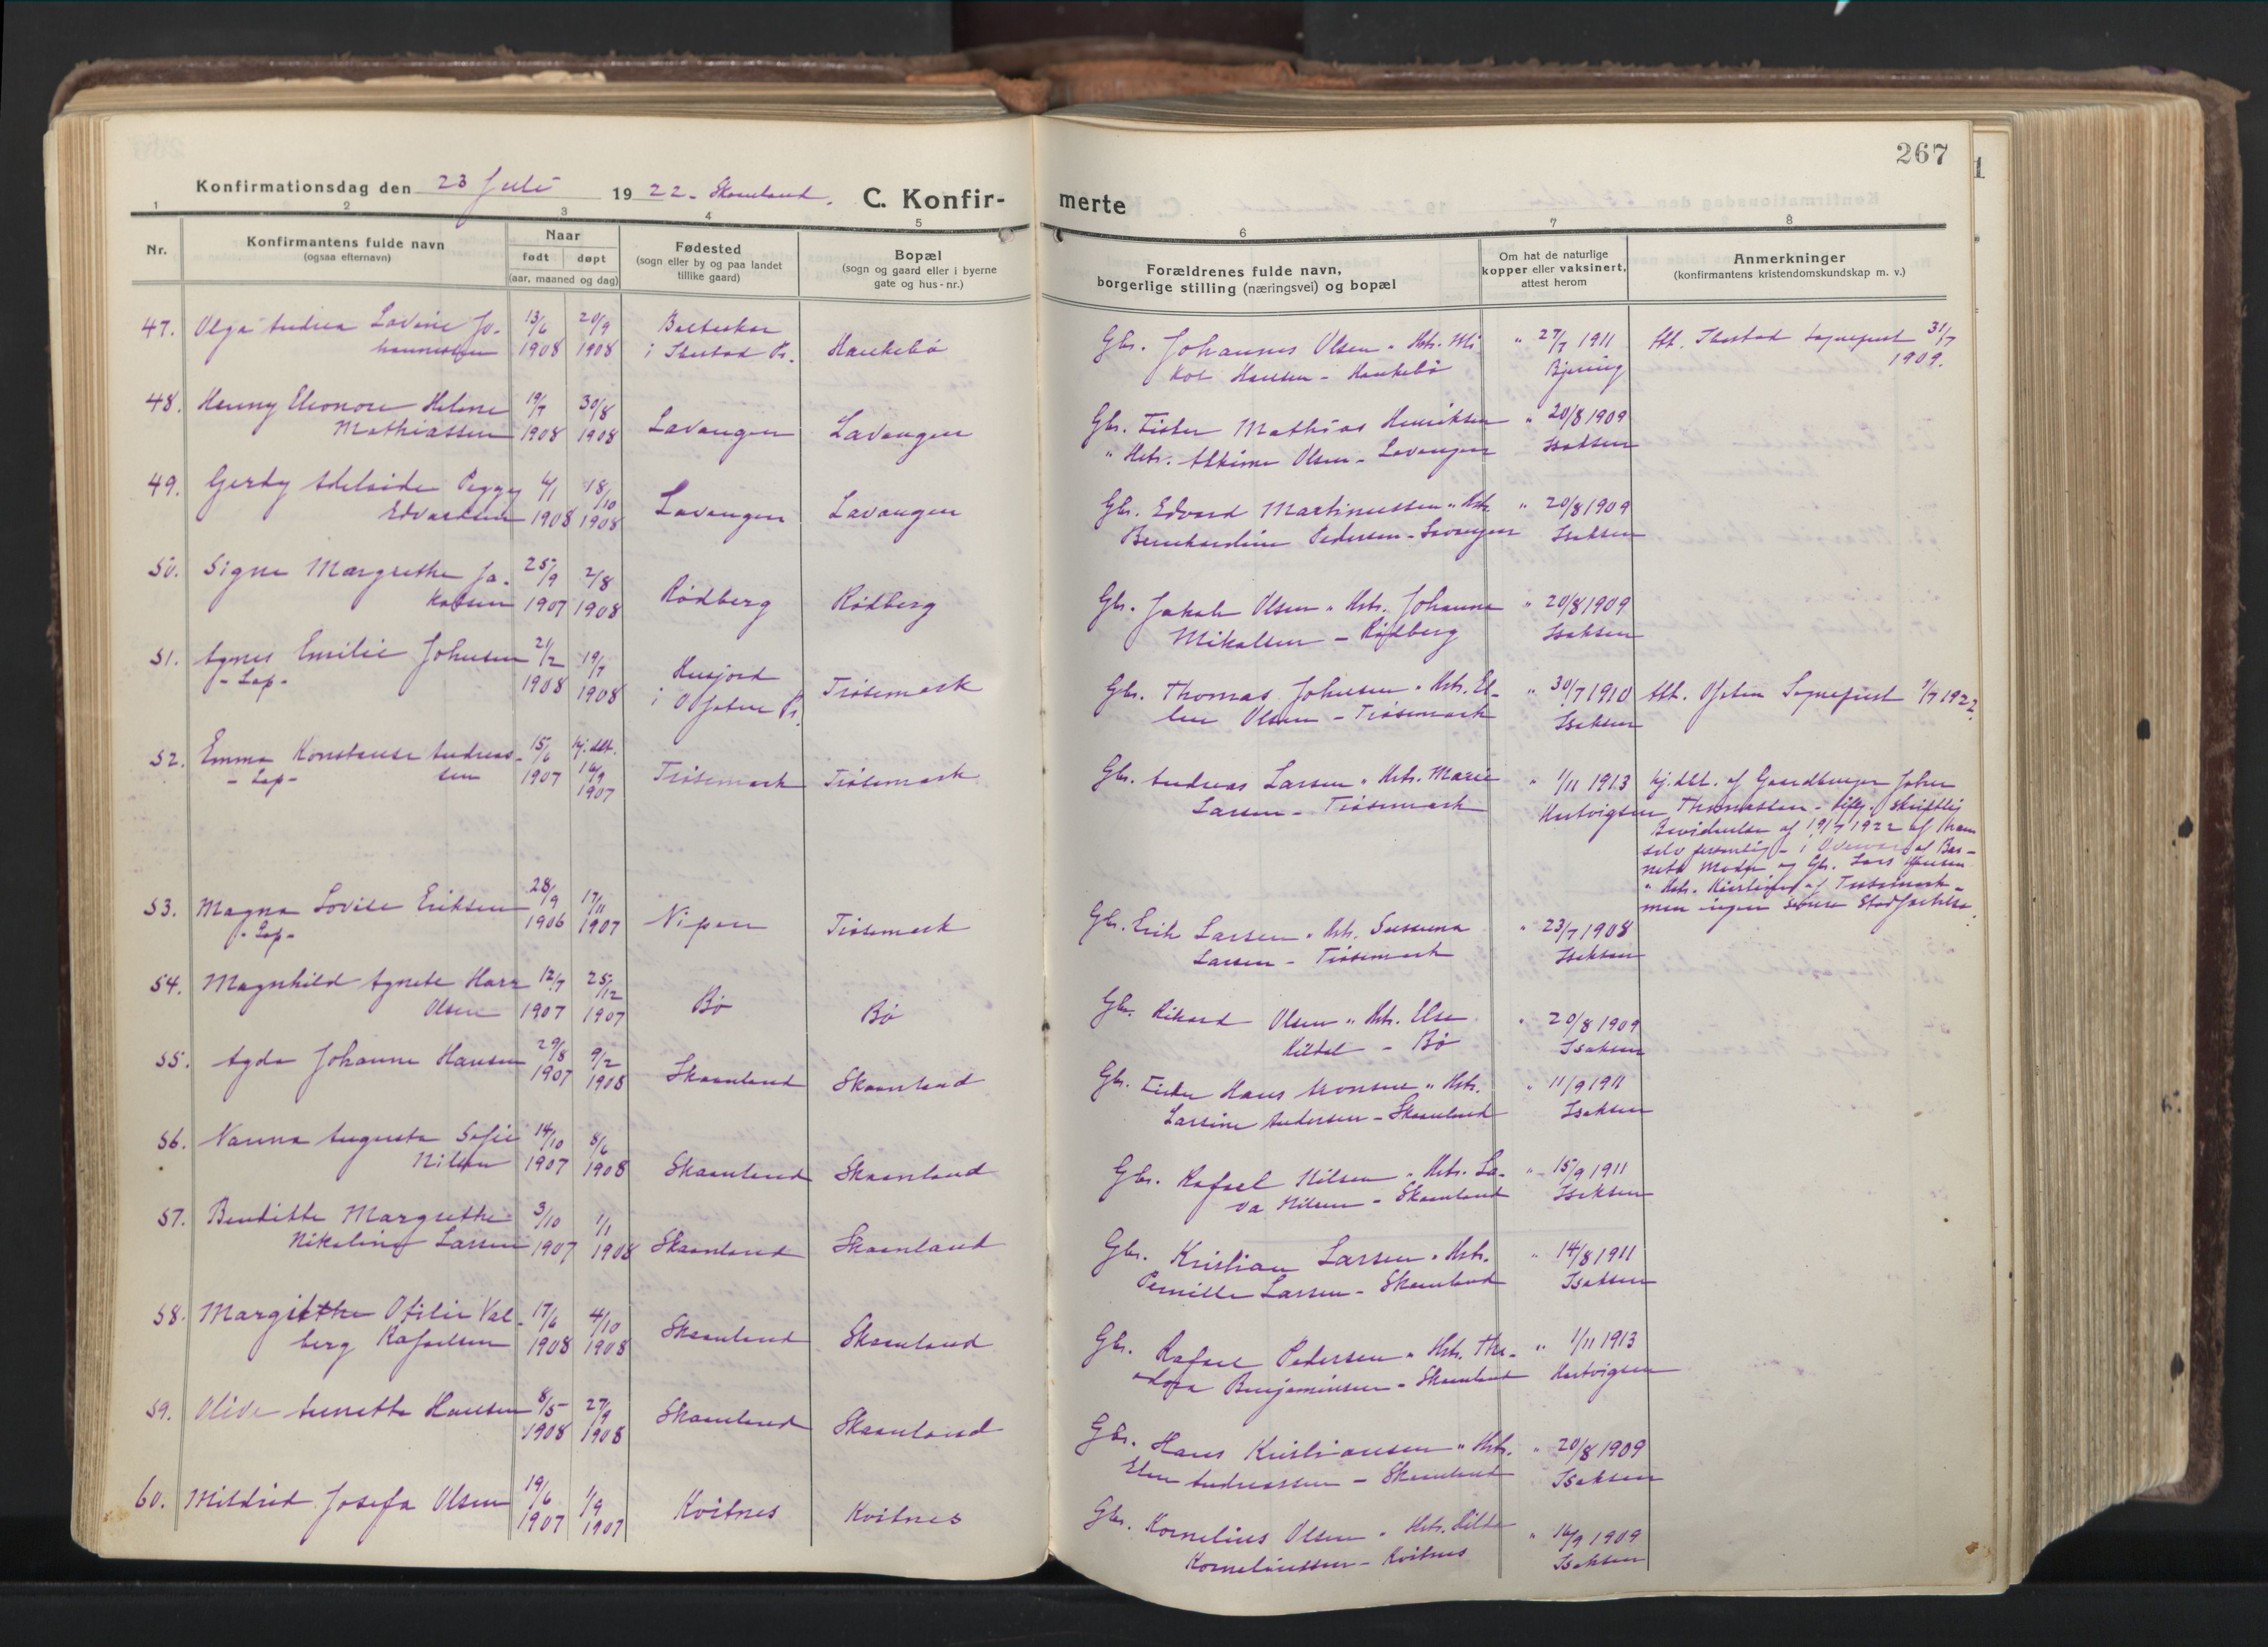 267
Konfirmationsdag den 23 Juli 1922. Skaanland. C. Konfir- merte
1 2 3 4 5 6 7 8
Nr.
Konfirmantens fulde navn
(ogsaa efternavn)
Naar
født døpt
(aar, maaned og dag)
Fødested
(sogn eller by og paa landet
tillike gaard)
Bopæl
(sogn og gaard eller i byerne
gate og hus-nr.)
Forældrenes fulde navn,
borgerlige stilling (næringsvei) og bopæl
Om hat de naturlige
kopper eller vaksinert,
attest herom
Anmerkninger
(konfirmantens kristendomskundskap m. v.)
47. Olga Andrea Lovine Jo- 13/6 20/9 Gbr. Johannes Olsen " Hstr. Mi " 27/7 1911 Att. Ibestad Sogneprest 31/7
hannessen 1908 1908 i Ibestad Pr. Haukebø Hansen - Haukebø Bjerring 1909.
48. Henny Eleonore Helene 19/7 30/8 Gbr. Fisker Mathias Henriksen " 20/8 1909
Mathiassen 1908 1908 Lavangen Lavangen " Hstr. Olsen - Lavangen Isaksen
49. Gerdy Adelaide Peggy 4/1 18/10 Gbr. Edvard Martinussen " Hstr. " 20/8 1909
Edvardsen 1908 1908 Lavangen Lavangen Bernhardine Pedersen - Lavangen Isaksen
50. Signe Margrethe Ja- 25/9 2/8 Gbr. Jakob Olsen " Hstr. Johanna " 20/8 1909
kobsen 1907 1908 Rødberg Rødberg Mikalsen - Rødberg Isaksen
51. Agnes Emilie Johnsen 21/2 19/7 Husjord Gbr. Thomas Johnsen " Hstr. El- " 30/7 1910 Att. Ofoten Sogneprest 1/7 1922.
- Lap - 1908 1908 i Ofoten Pr. Trøsemark len Olsen - Trøsemark Isaksen
52. Emma Konstanse Andreas- 15/6 hj. dbt. Gbr. Andreas Larsen " Hstr. Marie " 1/11 1913 hj. dbt. af Gaardbruger Johan
- Lap - sen 1907 16/9 1907 Trøsemark Trøsemark Larsen - Trøsemark Hartvigsen Thomassen - skriftlig
af 19/7 1922 af ham
selv personlig - i Overvær af Bar-
nets Moder og Gbr. Lars Hansen
" Hstr. af Trøsemark -
men ingen senere Stadfæstelse.
53. Magna Lovise Eriksen 28/9 17/11 Gbr. Erik Larsen " Hstr. Susanna " 23/7 1908
- Lap - 1906 1907 Nipen Trøsemark Larsen - Trøsemark Isaksen
54. Magnhild Agnete Harr 12/7 25/12 Gbr. Rikard Olsen " Hstr. Else " 20/8 1909
Olsen 1907 1907 Bø Bø Kildal - Bø Isaksen
55. Agda Johanne Hansen 29/8 9/2 Gbr. Fisker Hans Aronsen " Hstr. " 11/9 1911
1907 1908 Skaanland Skaanland Larsine Andersen - Skaanland Isaksen
56. Nanna Augusta Sofie 14/10 8/6 Gbr. Rafael Nilsen " Hstr. La- " 15/9 1911
Nilsen 1907 1908 Skaanland Skaanland va Nilsen - Skaanland Isaksen
57. Benditte Margrethe 3/10 1/1 Gbr. Kristian Larsen " Hstr. " 14/8 1911
Nikoline Larsen 1907 1908 Skaanland Skaanland Pernille Larsen - Skaanland Isaksen
58. Otilie Val- 17/6 4/10 Gbr. Rafael Pedersen " Hstr. The- " 1/11 1913
berg Rafaelsen 1908 1908 Skaanland Skaanland odora Benjaminsen - Skaanland Hartvigsen
59. Olive Annetta Hansen 8/5 27/9 Gbr. Hans Kristiansen " Hstr. " 20/8 1909
1908 1908 Skaanland Skaanland Elen Andreassen - Skaanland Isaksen
60. Mildrid Josefa Olsen 19/6 1/9 Gbr. Kornelius Olsen " Hstr. Hilda " 16/9 1909
1907 1907 Kvitnes Kvitnes Korneliussen - Kvitnes Isaksen